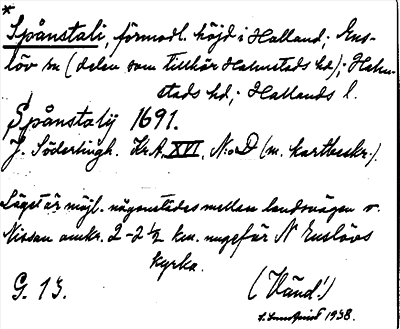 *
Spånstali, förmodl. höjd i Halland; Ens-
löv sn (delen som tillhör Halmstads hd); Halm-
stads hd; Hallands l.
Spånstalij 1691.
J. Söderlingh. Kr.A. XVI, N:o D (m. kartbeskr.).
Läget är möjl. någonstädes mellan landsvägen o.
Nissan omkr. 2-2 ½ km. ungefär N Enslövs
kyrka.
G. 13.
(Händ!)
1938.